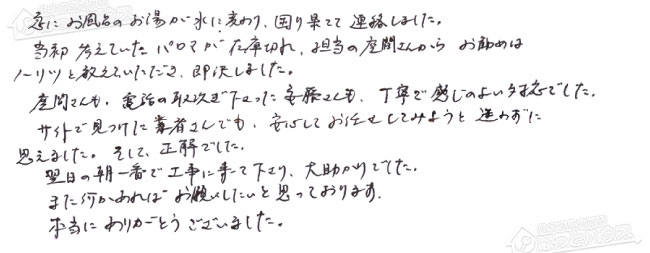 急に お風呂の お湯が 水に変わり、困り果てて 連絡しました。
当初 考えていた パロマが 在庫切れ、担当の座間さんから お勧めは
ノーリツと教えていただき、即決しました。
座間さんも、電話の取次ぎ下さった 安藤さんも、丁寧で感じのよい対応でした。
サイトで見つけた業者さんでも、安心してお任せしてみようと 迷わずに
思えました。そして、正解でした。
翌日の朝一番で工事に来て下さり、大助かりでした。
また何かあれば お願いしたいと思っております。
本当に ありがとうございました。